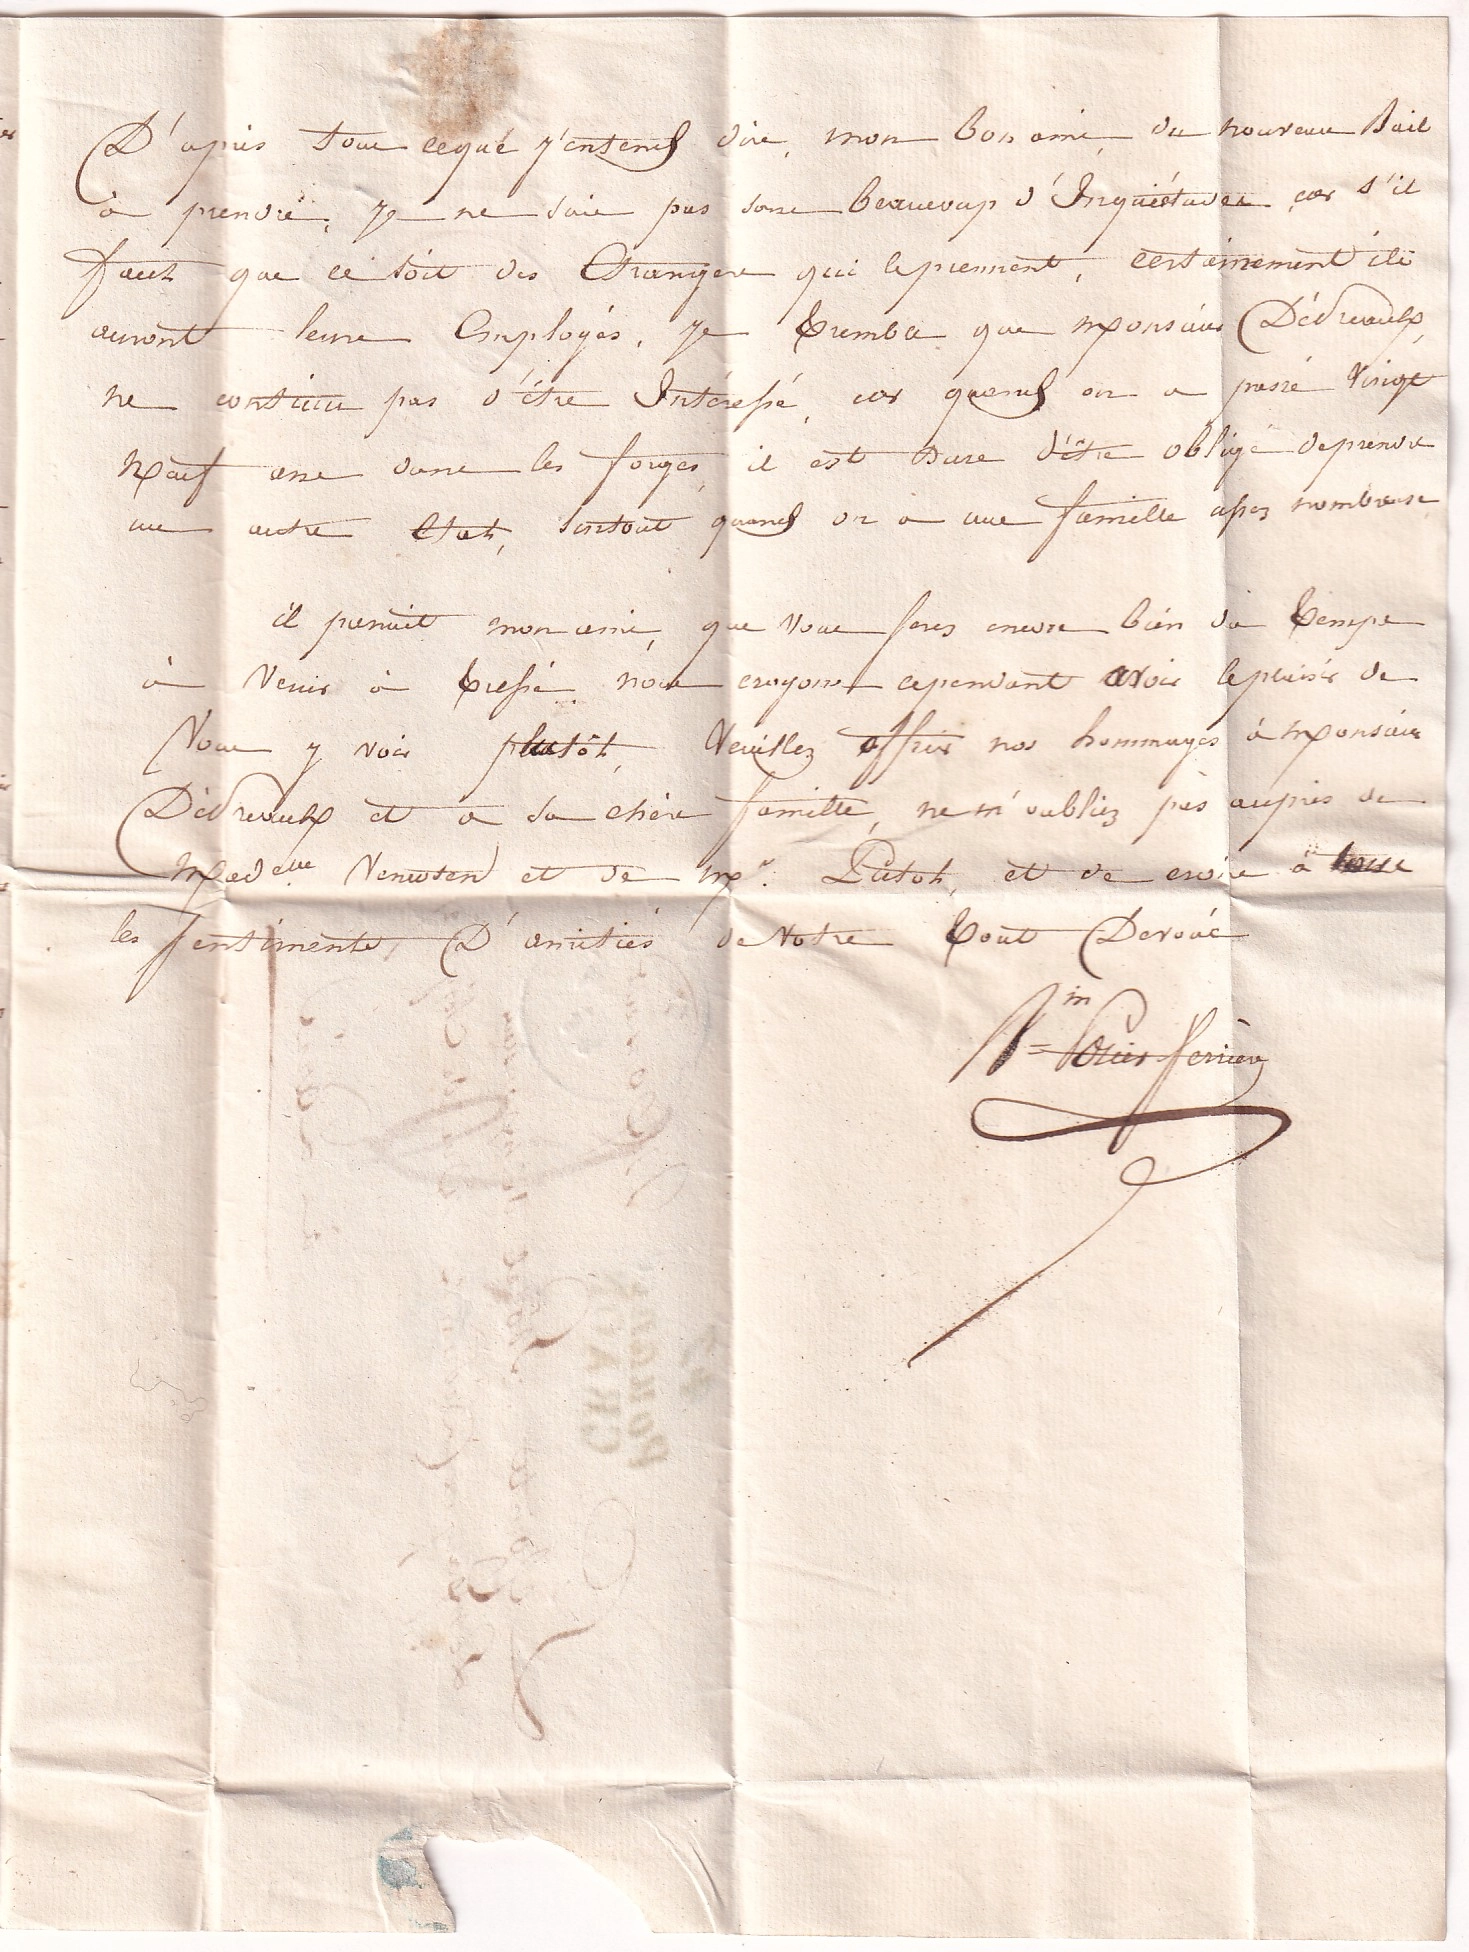 D'après tous ceque j'entend dire, mon bon ami, du nouveau Bail
à prendre, je ne suis pas sans beaucoup d'Inquiétudes, car s'il
faut que ce soit des Etrangers qui le prennent, certainement ils
auront leurs Employés, je tremble que Monsieur Dédreuxlx,
ne continu pas d'être Intéressé, car quand on a passé Vingt
Neuf ans dans les forges, il est dure d'être obligé deprendre
un autre Etat, surtout quand on a une famille assez nombreuse.
il parait mon ami, que vous serez encore bien du temps
à Venir à Cressé, nous croyons cependant avoir leplaisir de
Vous y voir plutôt, Veuillez offrir nos hommages à Monsieur
et a sa chère famille, ne m'oubliez pas auprès de
Madelle et de Mr. et de croire à tous
les sentiments, D'amitiés de Votre tout Dévoué
Vin = Louis ferrière